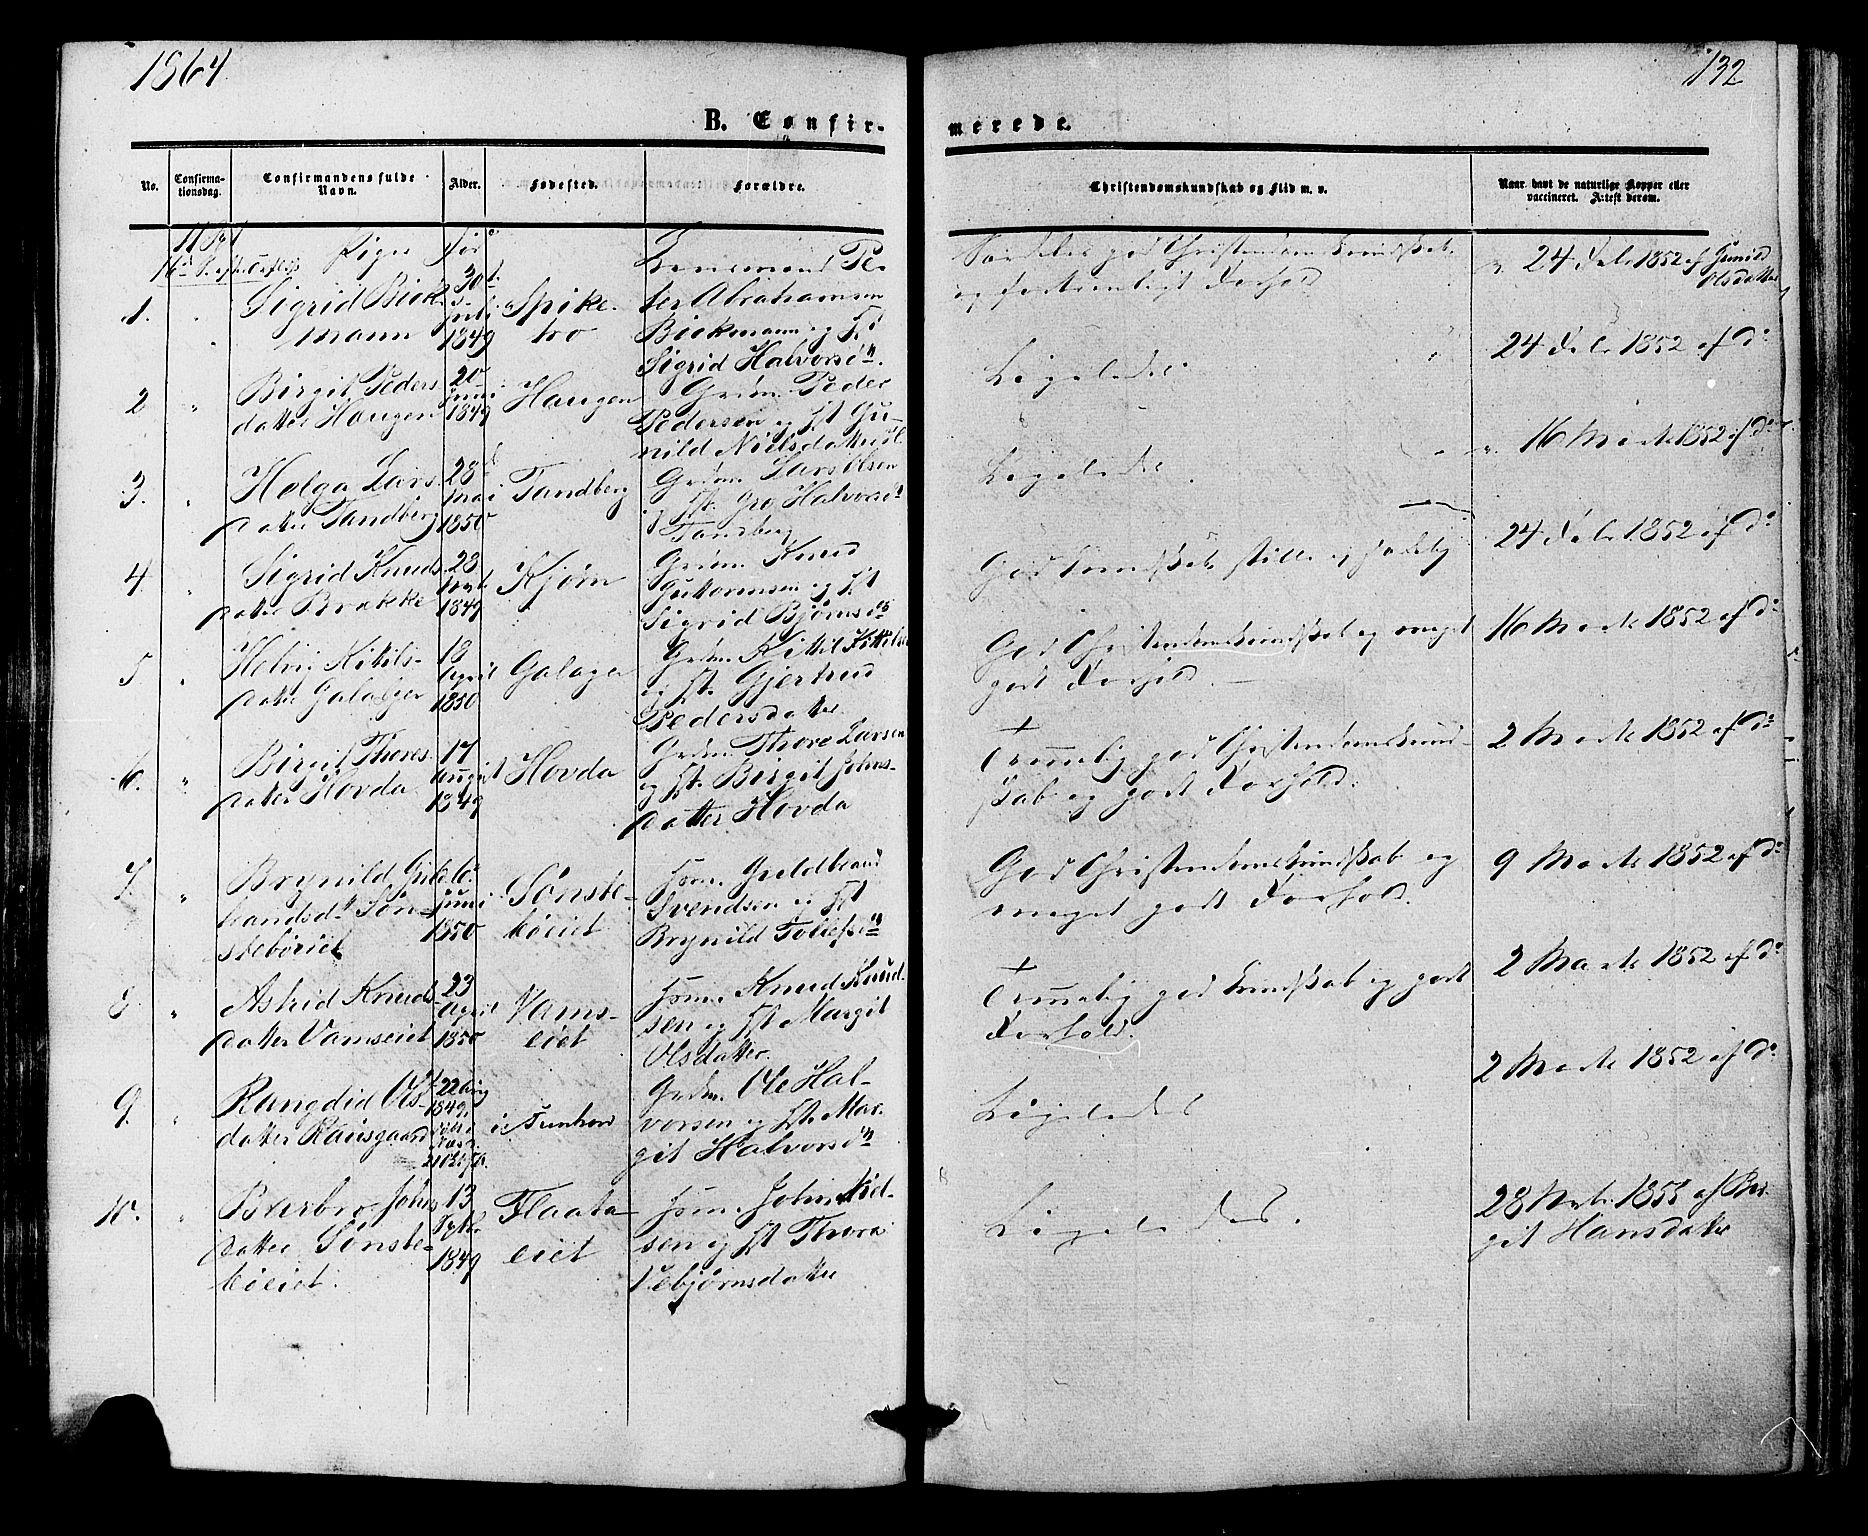 1864
132
B. Confir- merede.
No.
Confirma-
tionsdag.
Confirmandens fulde
Navn.
Alder.
Fødested.
Forældre.
Christendomskundskab og Flid m. v.
Naar havt de naturlige Kopper eller
vaccineret. Attest derom.
Piger
1.
Sigrid Biek
mann
30
Juli
1849
Spike-
bro
Pe-
ter Abrahamsen
Biekmann og
Sigrid Halvorsdn.
god Christendomskundskab
og fortrinligt Forhold
24 Feb. 1852 af Gunild
Olsdatter
2
"
Birgit Peders
datter Haugen
20
Juni
1849
Haugen
Grdm. Peder
Pedersen og Gu-
nild Nielsdatter
Ligeledes
24 Feb. 1852 af do
3.
"
Helga Lars
datter Tandberg
28
Mai
1850
Tandberg
Grdm. Lars Olsen
og Gro Halvorsd
Tandberg
Ligeledes
16 Marts 1852 af do
4.
"
Sigrid Knuds
datter Brakke
28
1849
Kjørn
Grdm. Knud
Guttormsen og
Sigrid Bjørnsd
God Kundskab stille og
24 Feb. 1852 af do
5
"
Helvig Kittils-
datter Galager
19
April
1850
Galager
Grdm. Kittil Kittilsen
og Gjertrud
Pedersdatter
God Christendomskundskab og meget
godt Forhold.
16 Marts 1852 af do
6.
"
Birgit Thores
datter Hovda
17
August
1849
Hovda
Grdm. Thore Larsen
og Birgit Johns-
datter Hovda
+
Temmelig god Christendomskund-
skab og godt Forhold.
2 Marts 1852 af do
7.
"
Brynild Guld-
brandsdtr Søn-
stebøeiet
Juni
1850
Sønste-
bøeiet
Huusm. Guldbrand
Svendsen og
Brynild Tollefsdn
God Christendomskundskab og
meget godt Forhold.
9 Marts 1852 af do
8
"
Astrid Knuds
datter Vamseiet
23
April
1850
Vams-
eiet
Huusm. Knud Knud-
sen og Margit
Olsdatter
+
Temmelig god Kundskab og godt
Forhold.
2 Marts 1852 af do
9.
"
Rangdid Ols-
datter
22 Aug
1849
Grdm. Ole Hal-
vorsen og Mar-
git Halvorsdn
Ligeledes
2 Marts 1852 af do
10.
"
Barbro Johns
datter Sønste-
bøeiet.
13
Septbr
1849
Flaata
eiet
Huusm. John Niel-
sen og Thora
Vebjørnsdatter
Ligeledes.
28 1855 af Bir-
git Hansdatter